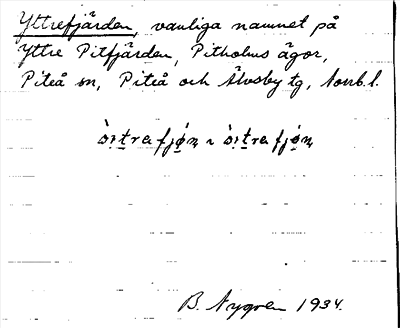 Yttrefjärden, vanliga namnet på
Yttre Pitfjärden, Pitholms ägor,
Piteå sn, Piteå och Älvsby tg, Norrb. l.
B. Nygren 1934.